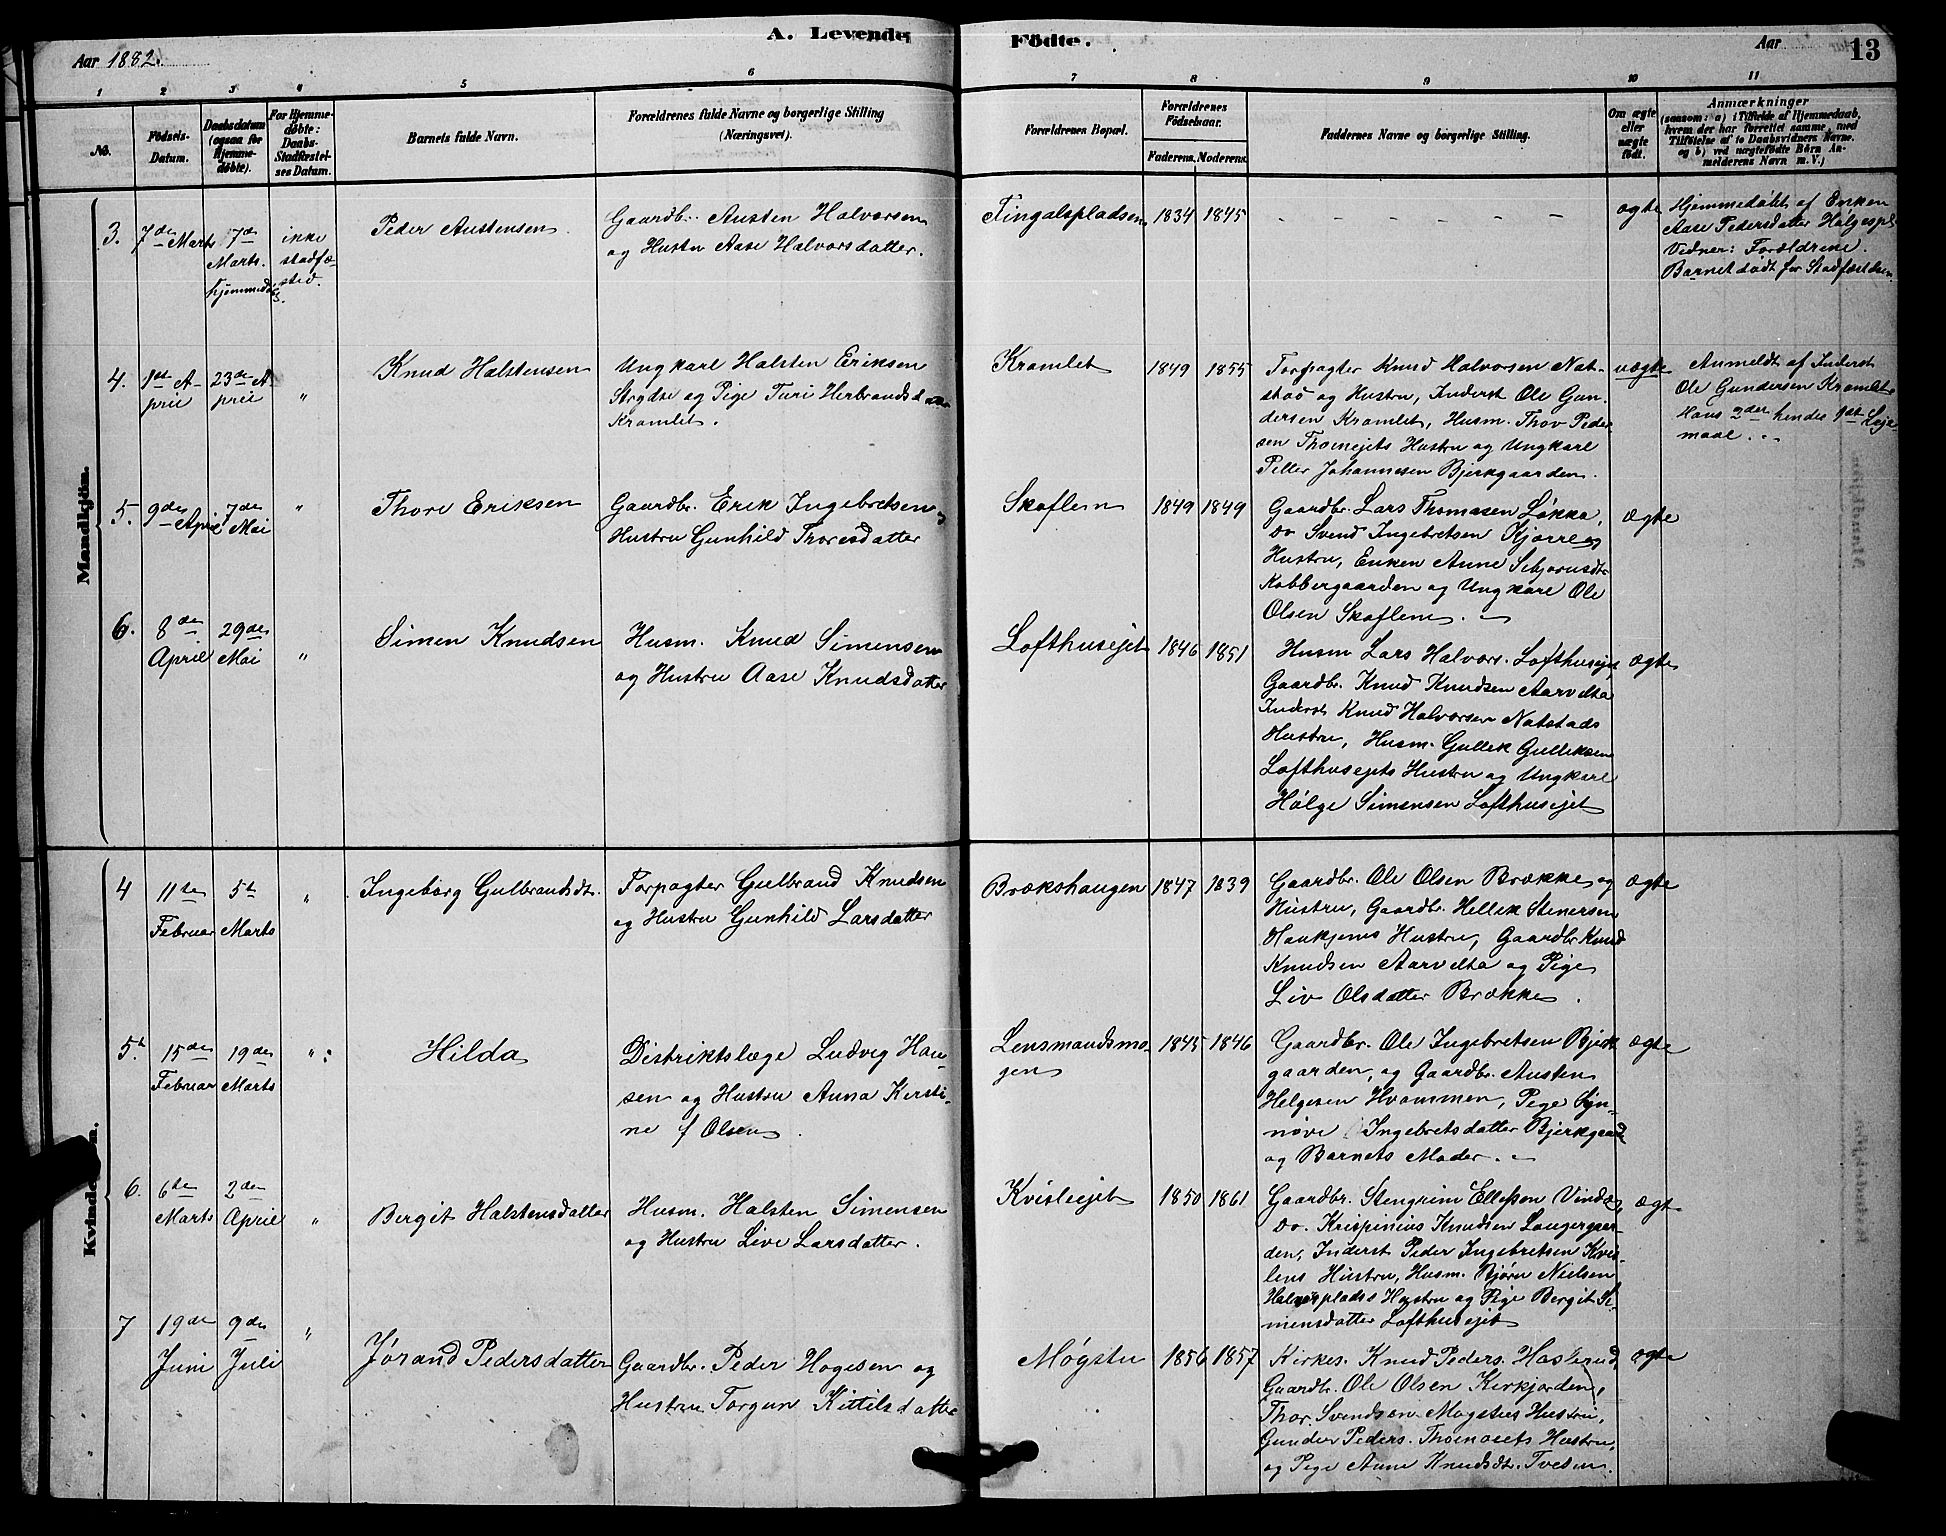 A. Levende Födte.
Aar 1882.
Aar
13
1 2 3 4 5 6 7 8 9 10 11
No.
Födsels-Datum.
Daabsdatum (ogsaa for Hjemme-døbte).
For Hjemme-døbte: Daabs-Stadfæstel-ses Datum.
Barnets fulde Navn.
Forældrenes fulde Navne og borgerlige Stilling (Næringsvei).
Forældrenes Bopæl.
Forældrenes Födselsaar.
Faderens. Moderens.
Faddernes Navne og borgerlige Stilling.
Om ægte eller uægte födt.
Anmærkninger
(saasom: a) i Tilfælde af Hjemmedaab, hvem der har forrettet samme, med Tilføielse af to Daabsvidners Navne, og b) ved uægtefødte Börn An-melderens Navn m. V.)
Mandkjön.
3. 7de Marts
7de Marts. Hjemmedøbt
ikke stadfæ-sted.
Peder Austensen
Gaardbr. Austen Halvorsen
og Hustru Aase Halvorsdatter.
Tingalspladsen
1834 1845
ægte
Hjemmedøbt af Enken
Aase Pedersdatter Helgespl.
Vidner: Forældrene.
Barnet dødt før Stadfæstelsen
4. 1st April
23de April
"
Knud Halstensen
Ungkarl Halsten Eriksen
Strydse og Pige Turi Herbrandsdatter
Kramlet.
Kramlet
1849 1855
Forpagter Knud Halvorsen Nat-
stad og Hustru, Inderst Ole Gun-
dersen Kramlet, Husm. Thov Peder-
sen Thomejets Hustru og Ungkarl
Petter Johannesen Bjerkgaarden.
uægte
Anmeldt af Inderst
Ole Gundersen Kramlet
Hans 2det hendes 1st Leje-
maal.
5. 9de April
7de Mai
"
Thore Eriksen
Gaardbr. Erik Ingebretsen og
Hustru Gunhild Thoresdatter
Skaflem
1849 1849
Gaardbr. Lars Thomasen Løkka,
Do Svend Ingebretsen Kjørre og
Hustru, Enken Anne Sebjørnsdtr
Kobbergaarden og Ungkarl Ole
Olsen Skaflem.
ægte
6. 8de April
29de Mai
"
Simen Knudsen
Husm. Knud Simensen
og Hustru Aase Knudsdatter
Lofthusejet
1846 1851
Husm Lars Halvors. Lofthusejet,
Gaardbr. Knud Knudsen Aarvelta
Inderst Knud Halvorsen Natstads
Hustru, Husm. Gullek Gulleksen
Lofthusejets Hustru og Ungkarl
Hølge Simensen Lofthusejet
ægte
Kvindekjön.
4 11te Februar
5t Marts
"
Ingeborg Gulbrandsdt.
Forpagter Gulbrand Knudsen
og Hustru Gunhild Larsdatter
Brækshaugen
1847 1839
Gaardbr. Ole Olsen Brække og
Hustru, Gaardbr. Hellek Stenersen
Haukjems Hustru, Gaardbr Knud
Knudsen Aarvelta og Pige
Liv Olsdatter Brække.
ægte
5t. 15de Februar
19de Marts
"
Hilda
Distriktslæge Ludvig Han-
sen og Hustru Anna Kirsti-
ne f Olsen.
Lensmandsmo-
gen
1845 1846
Gaardbr. Ole Ingebretsen Bjerk
gaarden, og Gaardbr. Austen
Helgesen Hvammen, Pige Syn-
nøve Ingebretsdatter Bjerkgaard
og Barnets Moder.
ægte
6. 6te Marts
2den April
"
Bergit Halstensdatter
Husm. Halsten Simensen
og Hustru Live Larsdatter.
Kvislejet
1850 1861
Gaardbr. Stengrim Ellefsen Vindeg,
Do. Krispinius Knudsen Langergaar-
den, Inderst Peder Ingebretsen Kvis-
lens Hustru, Husm. Bjørn Nielsen
Helgesplads Hustru og Pige Bergit Si-
mensdatter Lofthusejet
ægte
7 19de Juni
9de Juli
"
Jørand Pedersdatter
Gaardbr. Peder Hogesen og
Hustru Torgun Kittilsdatter
Møgstu
1856 1857
Kirkes. Knud Peders. Haslerud,
Gaardbr. Ole Olsen Kirkjorden,
Thor Svendsen Møgstues Hustru,
Gunder Peders. Thomasets Hustru,
og Pige Anne Knudsdtr. Tvesen.
ægte